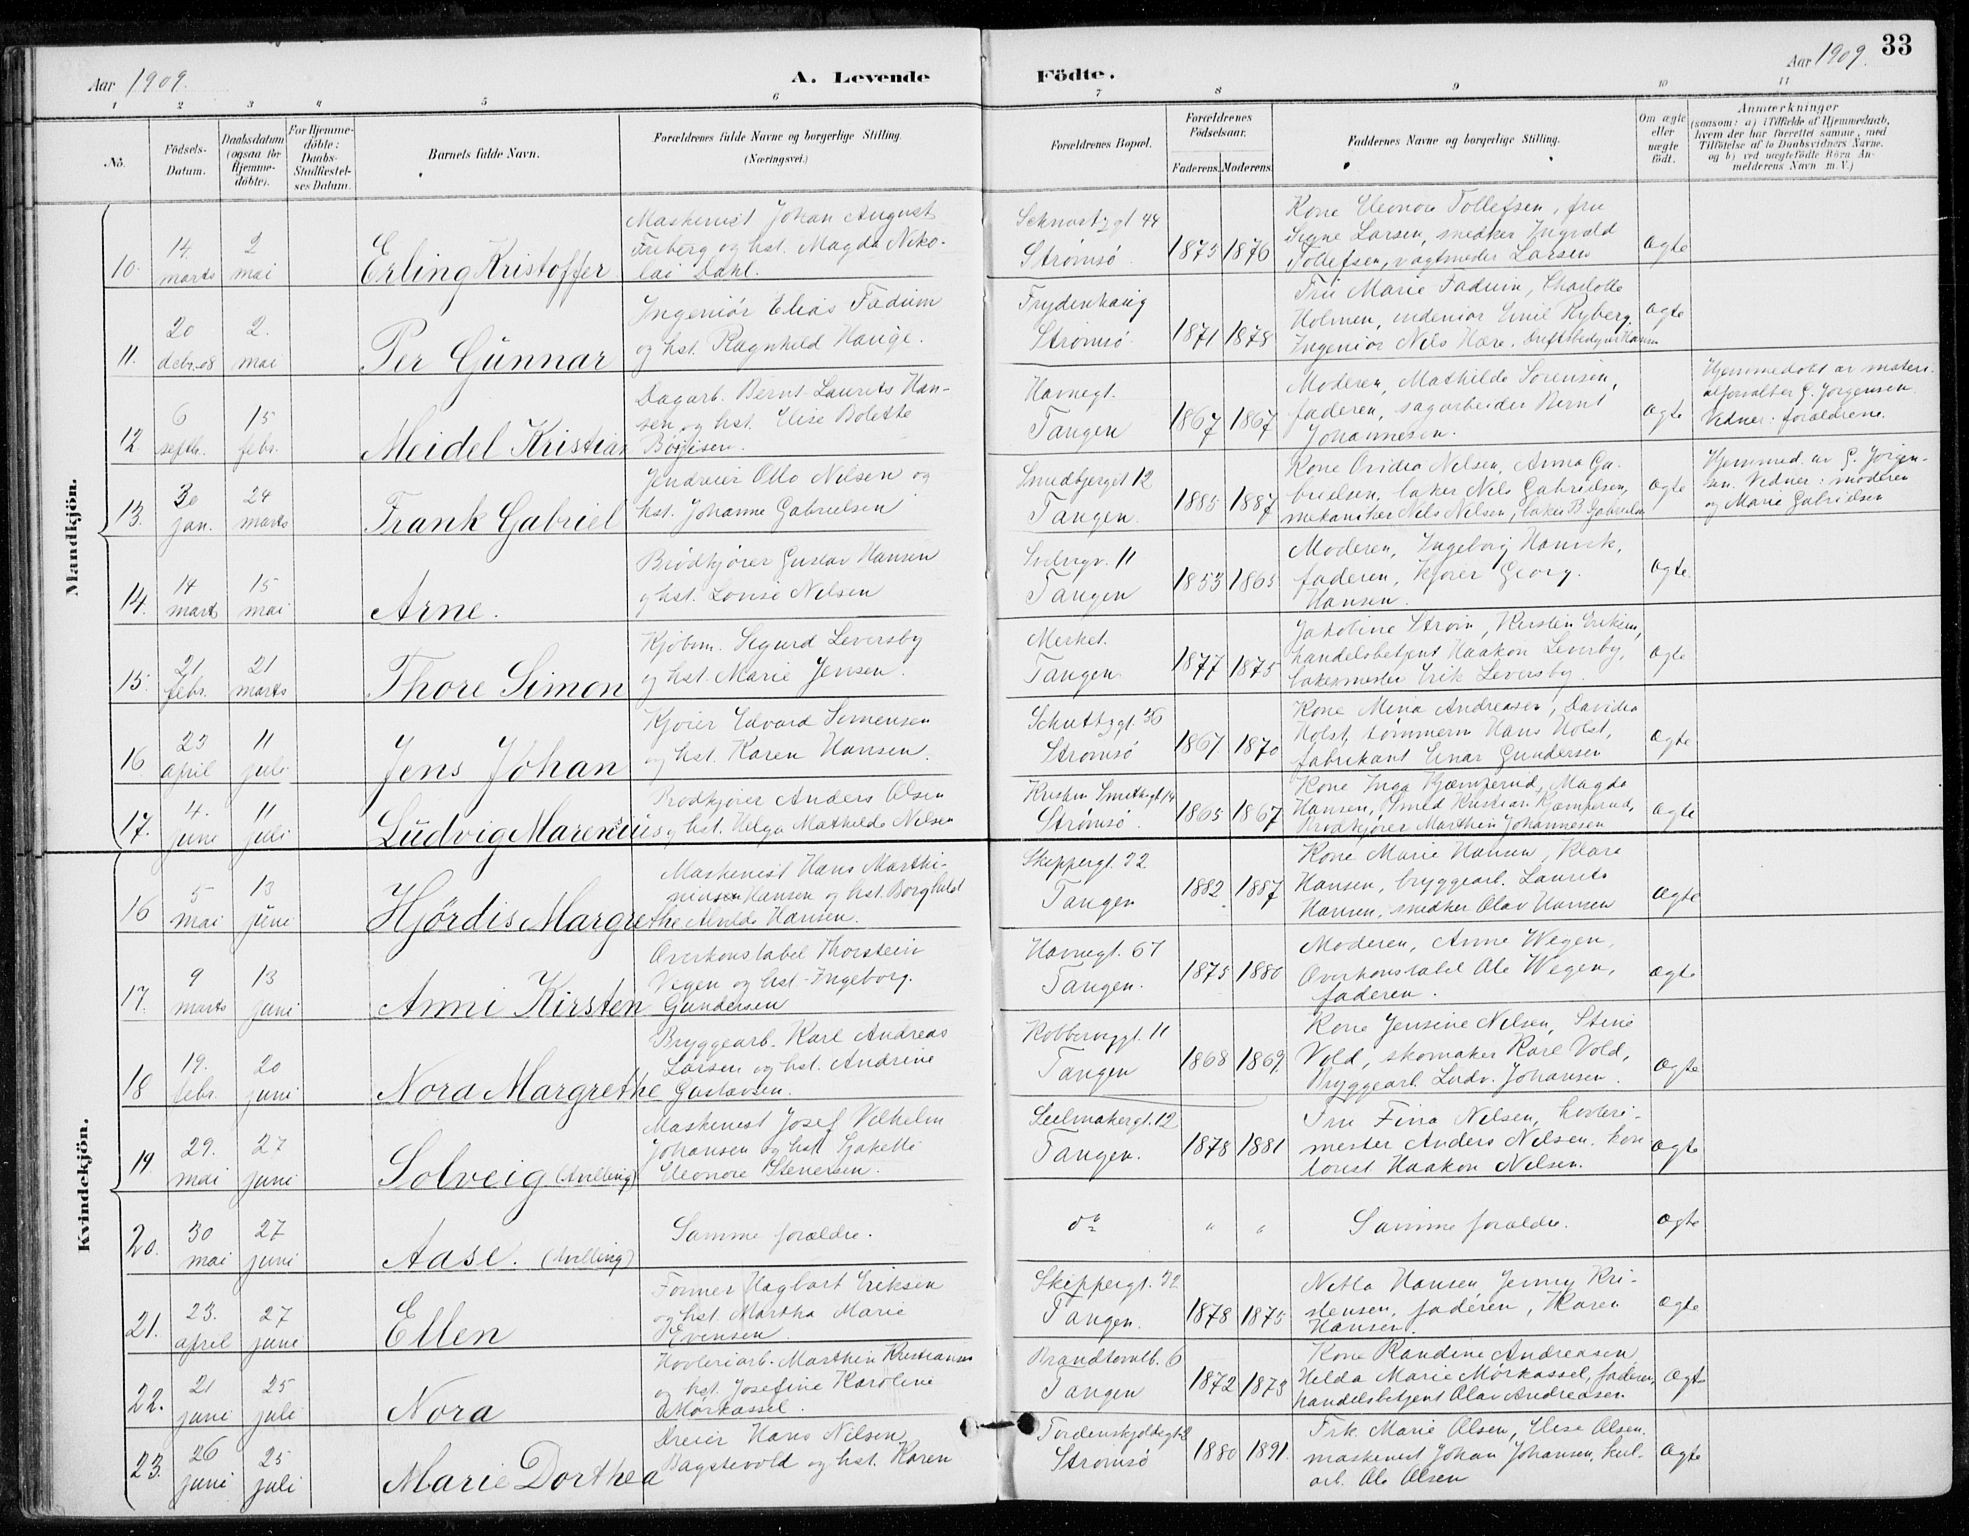 Aar 1909. A. Levende Födte. Aar 1909. 33
1 2 3 4 5 6 7 8 9 10 11
No. Födsels-Datum. Daabsdatum (ogsaa for Hjemme-döbte). For Hjemme-döbte: Daabs-Stadfestel-ses Datum. Barnets fulde Navn. Forældrenes fulde Navne og borgerlige Stilling. (Næringsvei.) Forældrenes Bopæl. Forældrenes Födselsaar. Faderens. Moderens. Faddernes Navne og borgerlige Stilling. Om ægte eller uægte födt. Anmærkninger (saasom: a) i Tilfælde af Hjemmedaab, hvem der har forrettet samme, med Tilföielse af to Daabsvidners Navne. og b) ved uægtefödte Börn Anmelderens Navn m. V.)
Mandkjön.
10. 14. marts 2 mai Erling Kristoffer
Maskinist Johan August
Freberg og hst. Magda Niko-
lai Dahl.
Schwartzgt 44
Strømsø. 1875 1876
Kone Eleonora Tollefsen, fru
Signe Larsen, snedker Ingvald
Tollefsen, vagtmester Larsen
Ægte
11. 20 debr. 08 2. mai Per Gunnar
Ingeniør Elias Fadum
og hst. Ragnhild Hauge.
Frydenhaug
Strømsø. 1871 1878
Fru Marie Fadum, Charlotte
Holmen, Emil Ryberg,
Ingeniør Nils Hare, Driftsbestyrer Hansen
Ægte
12. 6 septbr. 15 febr. Meidel Kristian
Dagarb. Bernt Laurits Han-
sen og hst. Elise Bolette
Havnegt.
Tangen 1867 1867
Moderen, Mathilde Sørensen,
faderen, sagarbeider Bernt
Johannesen.
Ægte
Hjemmedøbt av materi-
alforvalter G. Jørgensen.
Vidner: forældrene.
13. 30 jan. 24 marts Frank Gabriel
Jerndreier Otto Nilsen og
hst. Johanne Gabrielsen
Smedbjerget 12
Tangen. 1885 1887
Kone Ovidia Nilsen, Anna Ga-
brielsen, baker Nils Gabrielsen,
mekaniker Nils Nilsen, baker B. Gabrielsen
Ægte
Hjemmed. av G. Jørgen-
sen. Vidner: moderen
og Marie Gabrielsen
14. 14 marts 15 mai Arne.
Brødkjører Gustav Hansen
og hst. Lovise Nilsen
11
Tangen 1853 1865
Moderen, Ingeborg Hanvik,
faderen, kjører Georg
Hansen.
Ægte.
15. 21 febr. 21 marts Thore Simon
Kjøbm. Sigurd Leversby
og hst. Marie Jensen.
Merket.
Tangen 1877 1875
Jakobine Strøm, Kirsten Eriksen,
handelsbetjent Haakon Leversby,
bakermester Erik Leversby.
Ægte
16. 23 april 11 juli Jens Johan
Kjører Edvard Simensen
og hst. Karen Hansen.
Schultzgt. 36
Strømsø 1867 1870
Kone Mina Andreasen, Davidia
Holst, tømmerm Hans Holst,
fabrikant Einar Gundersen
Ægte
17. 4. juni 11 juli Ludvig Marensius
Brødkjører Anders Olsen
og hst. Helga Mathilde Nilsen
Kristen Smithsgt. 14
Strømsø. 1865 1867
Kone Inga Kjæmperud, Magda
Hansen, smed Kristian Kjæmperud,
Brødkjører Marthin Johannesen
Ægte
Kvindekjön.
16 5 mai 13 juni Hjørdis Margrethe
Maskinist Hans Marthi-
niusen Hansen og hst. Borghild
Alvilde Hansen.
Skippergt. 32
Tangen 1882 1887
Kone Marie Hansen, Klara
Hansen, bryggearb. Laurits
Hansen, snedker Olav Hansen
Ægte
17. 9 marts 13 juni Anni Kirsten
Overkonstabel Thorstein
Vegen og hst. Ingeborg.
Gundersen
Havnegt. 67
Tangen. 1875 1880
Moderen, Anne Wegen,
Overkonstabel Ole Wegen,
faderen.
Ægte
18 19. febr. 20 juni Nora Margrethe
Bryggearb. Karl Andreas
Larsen og hst. Andrine
Gustavsen.
Kobberviggt. 11
Tangen 1868 1869
Kone Jensine Nilsen, Stine
Vold, skomaker Karl Vold,
Bryggearb. Ludv. Johansen.
Ægte
19. 29. mai 27 juni Solveig (tvilling)
Maskinist Josef Vilhelm
Johansen og hst. Sjakette
Eleonore Stenersen.
Seilmakergt. 12
Tangen. 1878 1881
Fru Fina Nilsen, høvleri-
mester Anders Nilsen. kon
torist Haakon Nilsen.
Ægte
20. 30 mai 27 juni Aase. (tvilling)
Samme forældre.
do " "
Samme forældre.
Ægte
21. 23. april 27 juni Ellen
Former Hagbart Eriksen
og hst. Martha Marie
Evensen.
Skippergt. 32
Tangen. 1878 1875
Netta Hansen, Jenny Kri-
stensen, faderen, Karen
Hansen.
Ægte
22. 21 juni 25 juli Nora
Høvleriarb. Marthin Kristiansen
og hst. Josefine Karoline
Mørkassel.
6
Tangen 1872 1873
Kone Randine Andreasen
Helda Marie Mørkassel, faderen,
handelsbetjent Olav Andreasen
Ægte
23. 26 juni 25 juli Marie Dorthea
Dreier Hans Nilsen
Bagstevold og hst. Karen
Tordenskjoldsgt 2
Strømsø 1880 1891.
Frk. Marie Olsen, Elise Olsen.
maskinist Johan Johansen, kul-
arb. Ole Olsen
Ægte